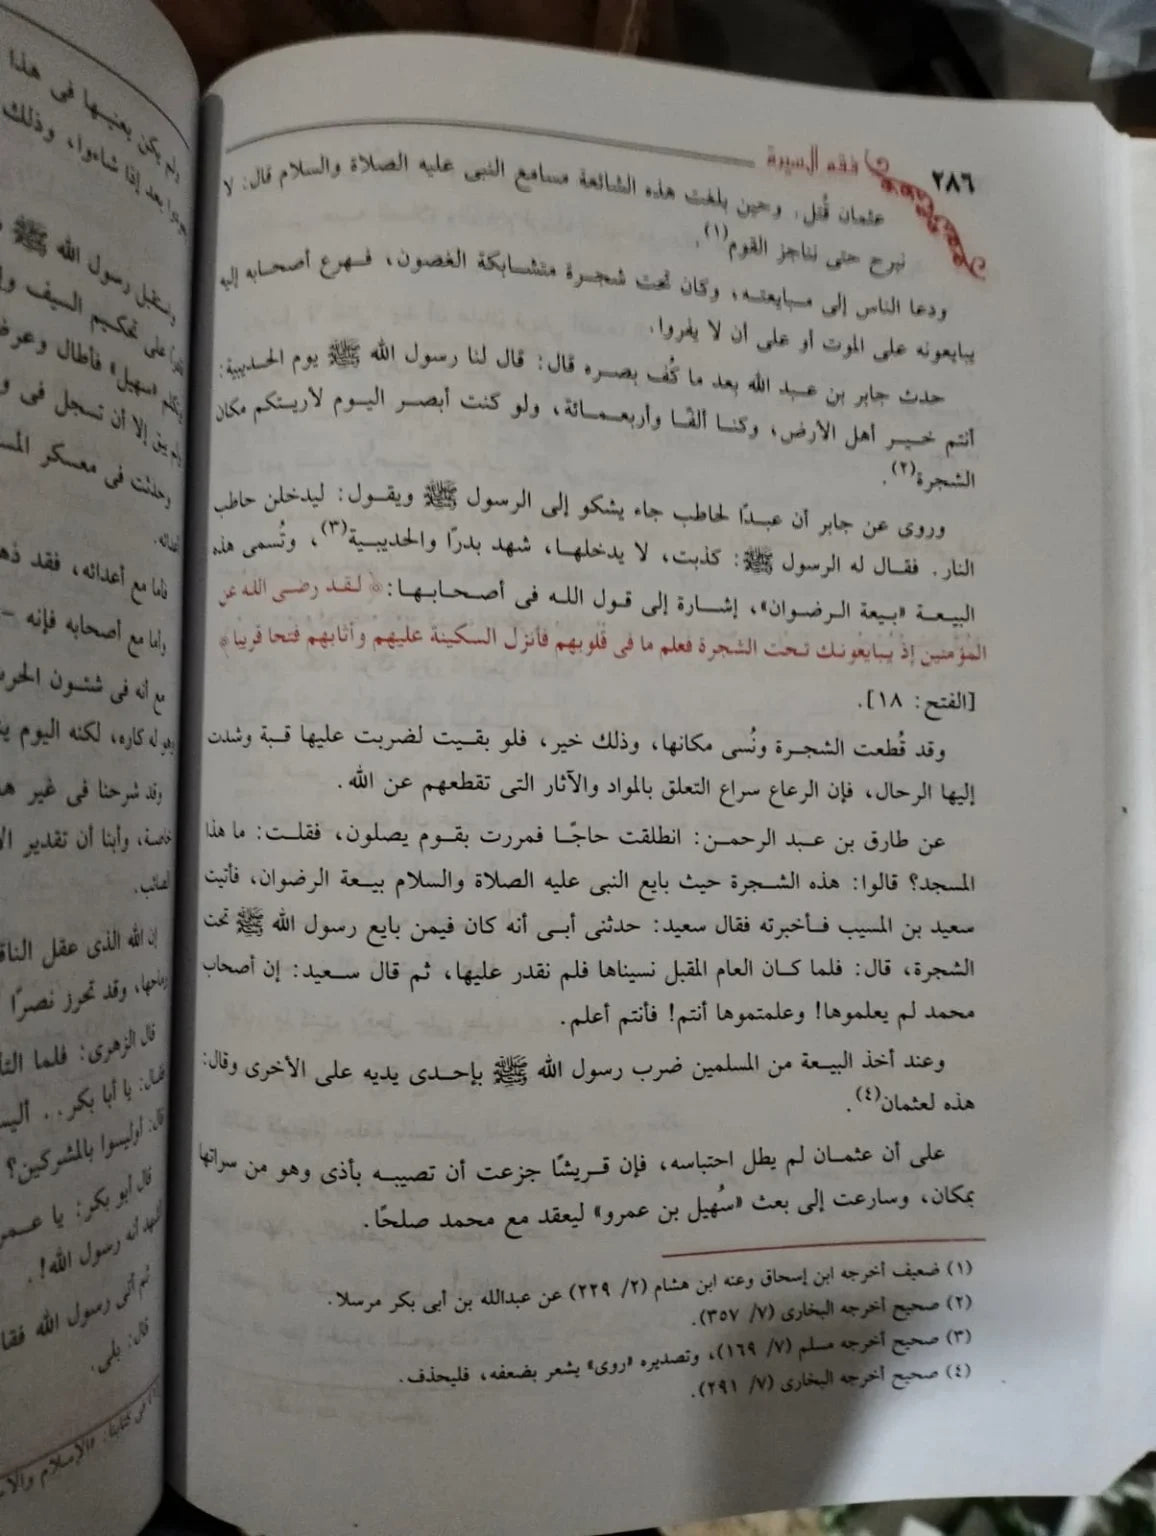 ٢٨٦
فقه السيرة
عثمان قُتل. وحين بلغت هذه الشائعة مسامع النبى عليه الصلاة والسلام قال: لا
نبرح حتى نناجز القوم(١).
ودعا الناس إلى مبايعته، وكان تحت شجرة متشابكة الغصون، فهرع أصحابه إليه
يبايعونه على الموت أو على أن لا يفروا.
حدث جابر بن عبد الله بعد ما كُف بصره قال: قال لنا رسول الله ﷺ يوم الحديبية:
أنتم خير أهل الأرض، وكنا ألفًا وأربعمائة، ولو كنت أبصر اليوم لأريتكم مكان
الشجرة(٢).
وروى عن جابر أن عبدًا لحاطب جاء يشكو إلى الرسول ﷺ ويقول: ليدخلن حاطب
النار. فقال له الرسول ﷺ: كذبت، لا يدخلها، شهد بدرًا والحديبية(٣)، وتُسمى هذه
البيعة «بيعة الرضوان»، إشارة إلى قول الله فى أصحابها: ﴿لقد رضى الله عن
المؤمنين إذ يبايعونك تحت الشجرة فعلم ما فى قلوبهم فأنزل السكينة عليهم وأثابهم فتحا قريبا﴾
[الفتح: ١٨].
وقد قُطعت الشجرة ونُسى مكانها، وذلك خير، فلو بقيت لضربت عليها قبة وشدت
إليها الرحال، فإن الرعاع سراع التعلق بالمواد والآثار التى تقطعهم عن الله.
عن طارق بن عبد الرحمن: انطلقت حاجًا فمررت بقوم يصلون، فقلت: ما هذا
المسجد؟ قالوا: هذه الشجرة حيث بايع النبى عليه الصلاة والسلام بيعة الرضوان، فأتيت
سعيد بن المسيب فأخبرته فقال سعيد: حدثنى أبى أنه كان فيمن بايع رسول الله ﷺ تحت
الشجرة، قال: فلما كان العام المقبل نسيناها فلم نقدر عليها، ثم قال سعيد: إن أصحاب
محمد لم يعلموها! وعلمتموها أنتم! فأنتم أعلم.
وعند أخذ البيعة من المسلمين ضرب رسول الله ﷺ بإحدى يديه على الأخرى وقال:
هذه لعثمان(٤).
على أن عثمان لم يطل احتباسه، فإن قريشًا جزعت أن تصيبه بأذى وهو من سراتها
بمكان، وسارعت إلى بعث «سُهيل بن عمرو» ليعقد مع محمد صلحًا.
(١) ضعيف أخرجه ابن إسحاق وعنه ابن هشام (٢/ ٢٢٩) عن عبدالله بن أبى بكر مرسلا.
(٢) صحيح أخرجه البخارى (٧/ ٣٥٧).
(٣) صحيح أخرجه مسلم (٧/ ١٦٩)، وتصديره «روى» يشعر بضعفه، فليحذف.
(٤) صحيح أخرجه البخارى (٧/ ٢٩١).
ولم يكن يعنيها فى هذا
بعد إذا شاءوا، وذلك
رسول الله ﷺ
على تحكيم السيف
«سهيل» فأطال
إلا أن تسجل فى
وحدثت فى معسكر
فأما مع أعدائه، فقد
وأما مع أصحابه فإنه –
مع أنه فى شئون
وهو له كاره، لكنه اليوم
وقد شرحنا فى غير
خاصة، وأبنا أن تقدير
إن الله الذى عقل
وقد تحرز نصرًا
قال الزهرى: فلما
فقال: يا أبا بكر..
قال: أوليسوا بالمشركين؟
قال أبو بكر: يا
أشهد أنه رسول الله!.
ثم أتى رسول الله
قال: بلى.